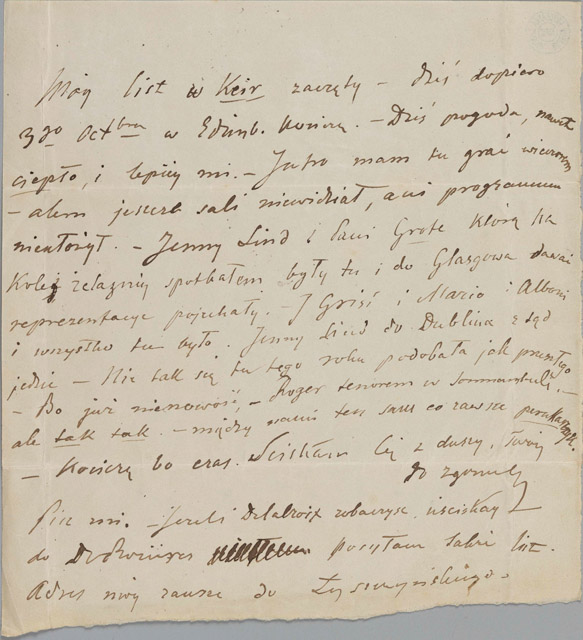 Mój list w Keir zaczęty – dziś dopiero
3go Octbra w Edinb. kończę. – Dziś pogoda, nawet
ciepło, i lepiej mi. – Jutro mam tu grać wieczorem
– alem jeszcze sali niewidział, ani programmu
nieułożył. – Jenny Lind i Pani Grote którą na
Kolei żelaznej spotkałem były tu i do Glasgowa dawać
reprezentacye pojechały. – I Grisi i Mario i Alboni
i wszystko tu było. Jenny Lind do Dublina z tąd
jedzie – Nie tak się tu tego roku podobała jak przeszłego
– Bo już nienowość, – Roger tenorem w Sonnambuli. –
ale tak tak. – między nami ten sam co zawsze
– Kończę bo czas. Ściskam Cię z duszy, Twój
do zgonu
Pisz mi. – Jeżeli Delacroix zobaczysz uściskaj
do De Rozières posyłam także list.
Adres mój zawsze do Łyszczyńskiego.